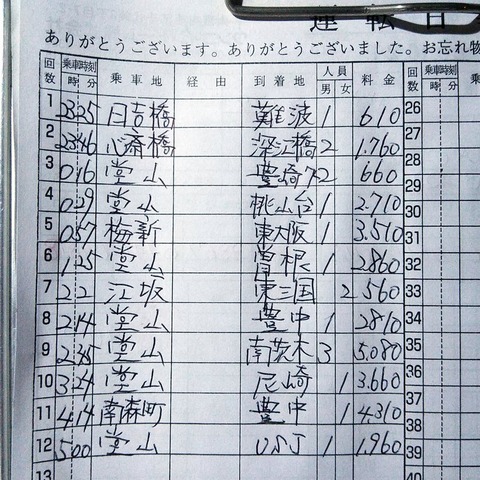 運転日
ありがとうございます。ありがとうございました。お忘れ物
回数 乗車時刻 時 分 乗車地 経由 到着地 人員 男 女 料金 回数 乗車時刻 時 分
1 23 25 日吉橋 難波 1 610 26
2 23 46 心斎橋 深江橋 2 1.760 27
3 0 16 堂山 豊崎 2 660 28
4 0 29 堂山 桃山台 1 2.710 29
5 0 57 梅新 東大阪 1 3.510 31
6 1 25 堂山 曽根 1 2860 32
7 2 2 江坂 東三国 2 560 33
8 2 14 堂山 豊中 1 2810 34
9 2 45 堂山 南茨木 3 5.080 35
10 3 24 堂山 尼崎 1 3.660 37
11 4 14 南森町 豊中 1 4.310 38
12 5 00 堂山 USJ 1 1.960 39
13 40